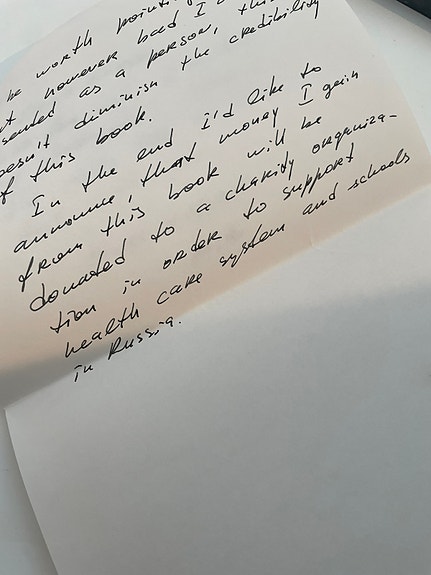 be worth point
however bad I
as a person, thi
doesn't diminish the credibility
of this book.
In the end i'd like to
announce, that money I gain
from this book will be
donated to a charity organiza-
tion in order to support
health care system and schools
in Russia.